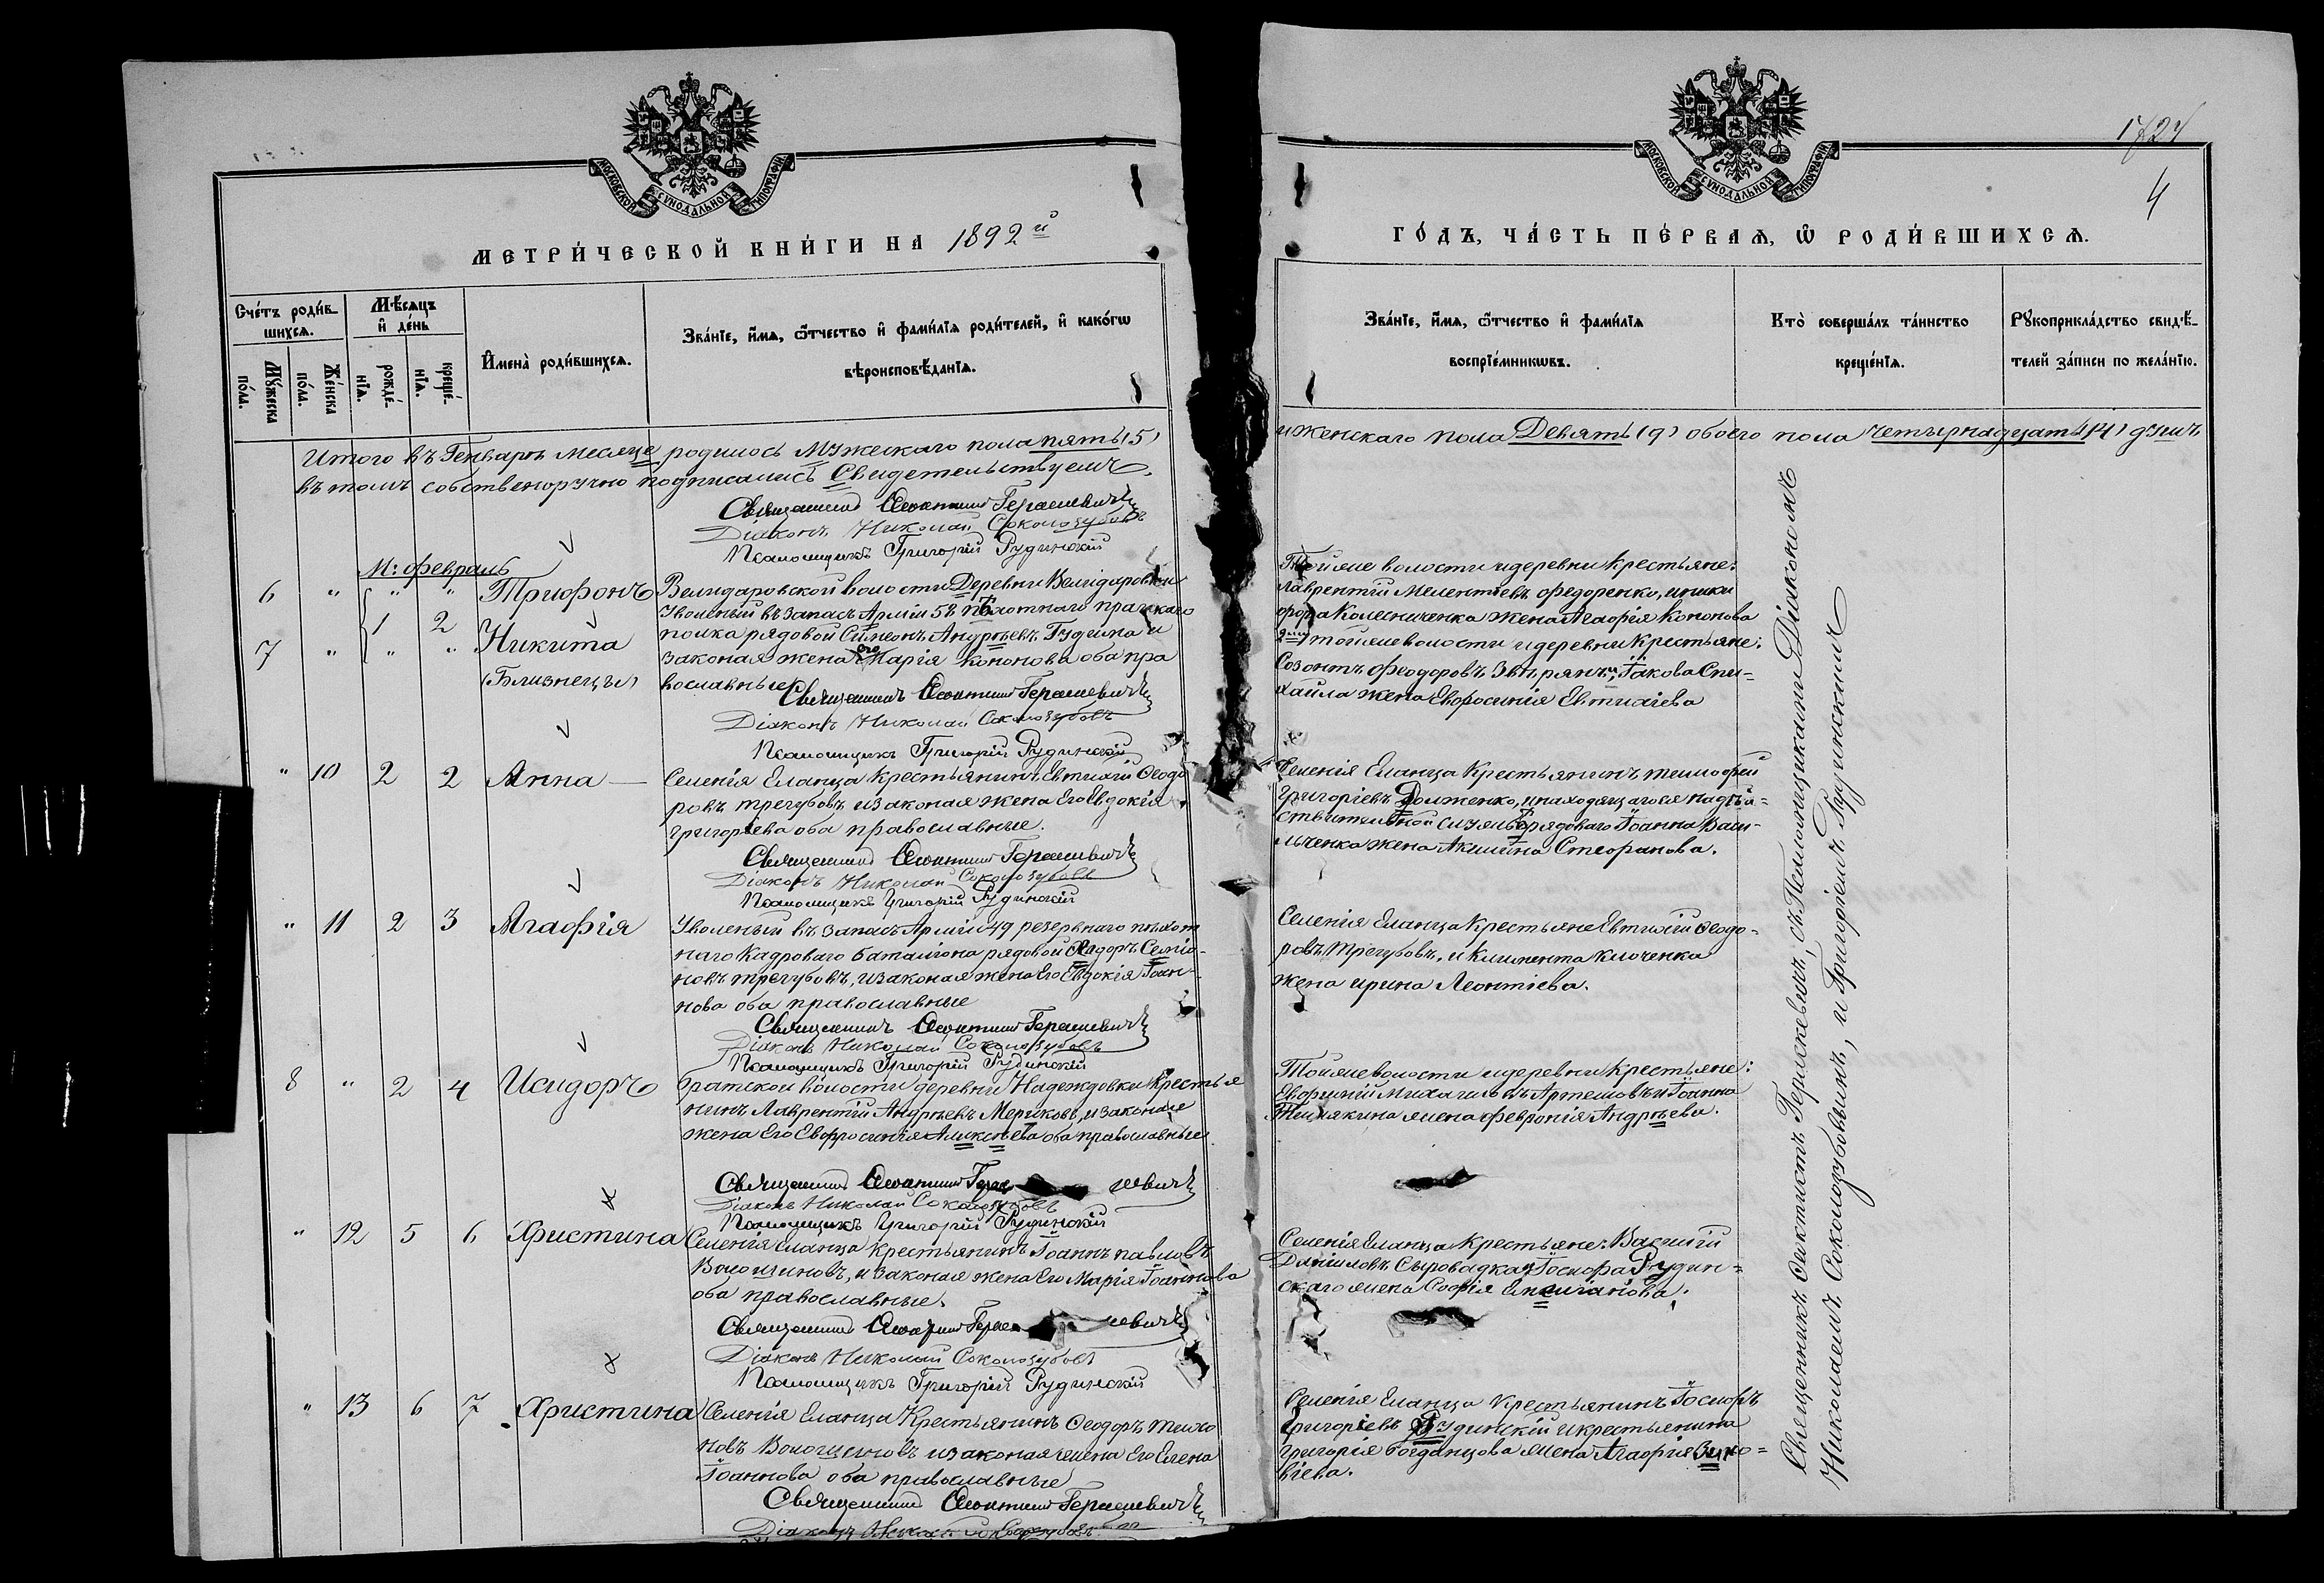 МОСКОВСКОЙ СѴНОДАЛЬНОЙ ТИПОГРАФІИ
МЕТРИ́ЧЕСКОЙ КНИ́ГИ НА 1892й
Сче́тъ роди́в-
шихсѧ.
Мѣ́сяцъ
и де́нь
Мꙋ́жеска
по́ла.
Же́нска
по́ла.
рожде́-
нїѧ.
креще́-
нїѧ.
Имена̀ роди́вшихсѧ.
Зва́нїе, и́мѧ, ѻ́тчество и фами́лїѧ роди́телей, и како́гѡ
вѣроисповѣ́данїѧ.
Итого въ Генварѣ месяце родилось Мужескаго пола пять (5)
въ томъ собственоручно подписались Свидетельствуемъ
Священникъ Ѳеоктистъ Герасекевичъ
Діаконъ Николай Соколозубовъ
Псаломщикъ Григорій Рудинскій
М: февраль
6 " " " Трифонъ Велидаровской волости Деревни Велидаровки
1 2 Уволеный въ запасъ Арміи 58 пѣхотнаго прагскаго
7 " " " Никита полка рядовой Симеонъ Андрѣевъ Гудима и
законая жена его Марія Кононова оба пра
(Близнецы) вославные
Священникъ Ѳеоктистъ Герасекевичъ
Діаконъ Николай Соколозубовъ
Псаломщикъ Григорій Рудинскій
" 10 2 2 Анна — Селенія Еланца Крестьянинъ Евтихій Ѳеодо
ровъ трегубовъ, и законая жена Его Евдокія
григоріева оба православные.
Священникъ Ѳеоктистъ Герасекевичъ
Діаконъ Николай Соколозубовъ
Псаломщикъ Григорій Рудинскій
" 11 2 3 Агафія Уволеный въ запасъ Арміи 49 резервнаго пѣхот
наго Кадроваго баталіона рядовой Ѳеодоръ Семіо-
новъ трегубовъ, и законая жена Его Евдокія Іоан-
нова оба православные
Священникъ Ѳеоктистъ Герасекевичъ
Діаконъ Николай Соколозубовъ
Псаломщикъ Григорій Рудинскій
8 " 2 4 Исидоръ Братской волости деревни Надеждовки Крестья
нинъ Лаврентій Андрѣевъ Мериковъ, и законае
жена Его Евфросинія Аликсѣева оба православные
Священникъ Ѳеоктистъ Гера евичъ
Діаконъ Николай Сокалозубовъ
Псаломщикъ Григорій Рудинскій
" 12 5 6 Христина Селенія Еланца крестьянинъ Іоаннъ павловъ
Волощиновъ, и законае жена Его Марія Іоаннова
оба православные.
Священникъ Ѳеоктистъ Гера евичъ
Діаконъ Николай Соколозубовъ
Псаломщикъ Григорій Рудинскій
" 13 6 7 Христина Селенія Еланца Крестьянинъ Ѳеодоръ тихо
новъ Волощеновъ и законая жена Его Елена
Іоаннова оба православные
Священникъ Ѳеоктистъ Герасекевичъ
МОСКОВСКОЙ СѴНОДАЛЬНОЙ ТИПОГРАФІИ
4
ГО́ДЪ, ЧА́СТЬ ПЕ́РВАѦ, Ѡ РОДИ́ВШИХСѦ.
Зва́нїе, и́мѧ, ѻ́тчество и фами́лїѧ
воспрїе́мникѡвъ.
Кто̀ соверша́лъ та́инство
креще́нїѧ.
Рꙋкоприкла́дство свидѣ́-
телей за́писи по жела́нїю.
и женскаго пола Девять (9) обоего пола четырнадцать (14) душъ
Тойже волости и деревни крестьяне:
Лаврентій Мелентіевъ федоренко, и ники
фора Колесниченка жена Агафія Кононова
2й тойже волости и деревни Крестьяне:
Созонтъ феодоровъ Звирянъ, Іакова Спи-
хайла жена Евфросинія Евтихіева
Селенія Еланца Крестьянинъ тимофей
григоріевъ Долженко, и находящагося на дѣй-
ствительной службѣ рядоваго Іоанна Васи-
льченка жена Акилина Стефанова.
Селенія Еланца Крестьяне Евтихій Ѳеодо-
ровъ Трегубовъ, и Климента клоченка
жена ирина Леонтіева.
Тойже волости и деревни Крестьяне:
Евфимій Михаиловъ Артемовъ и Іоанна
жена февронія Андрѣева.
Селенія Еланца Крестьяне: Василій
Даніиловъ Сыровадка, Іосифа Рудин-
скаго жена Софія Емиліанова.
Селенія Еланца Крестьянинъ Іосифъ
Григоріевъ Рудинскій и крестьянина
григорія богданцова жена Агафія Зино-
віева.
Священникъ Ѳеоктистъ Герасекевичъ, съ Псаломщиками Діакономъ
Николаемъ Соколозубовымъ, и Григоріемъ Рудинскимъ